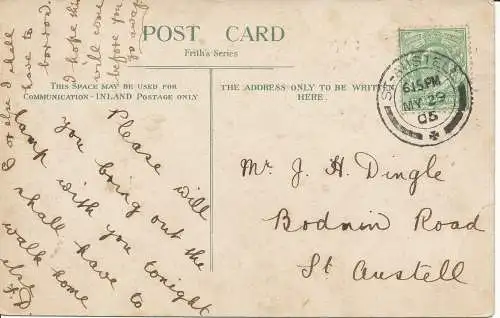 POST CARD
Frith's Series
THIS SPACE MAY BE USED FOR
COMMUNICATION - INLAND POSTAGE ONLY
THE ADDRESS ONLY TO BE WRITTEN
HERE.
ST-AUSTELL
6.15 PM
MY 29
05
Please will
you bring out the
lamp with you tonight
shall have to
walk home
I or else I shall
have to
borrow.
I hope this
will come
before you
go away
Mr. J. H. Dingle
Bodmin Road
St Austell